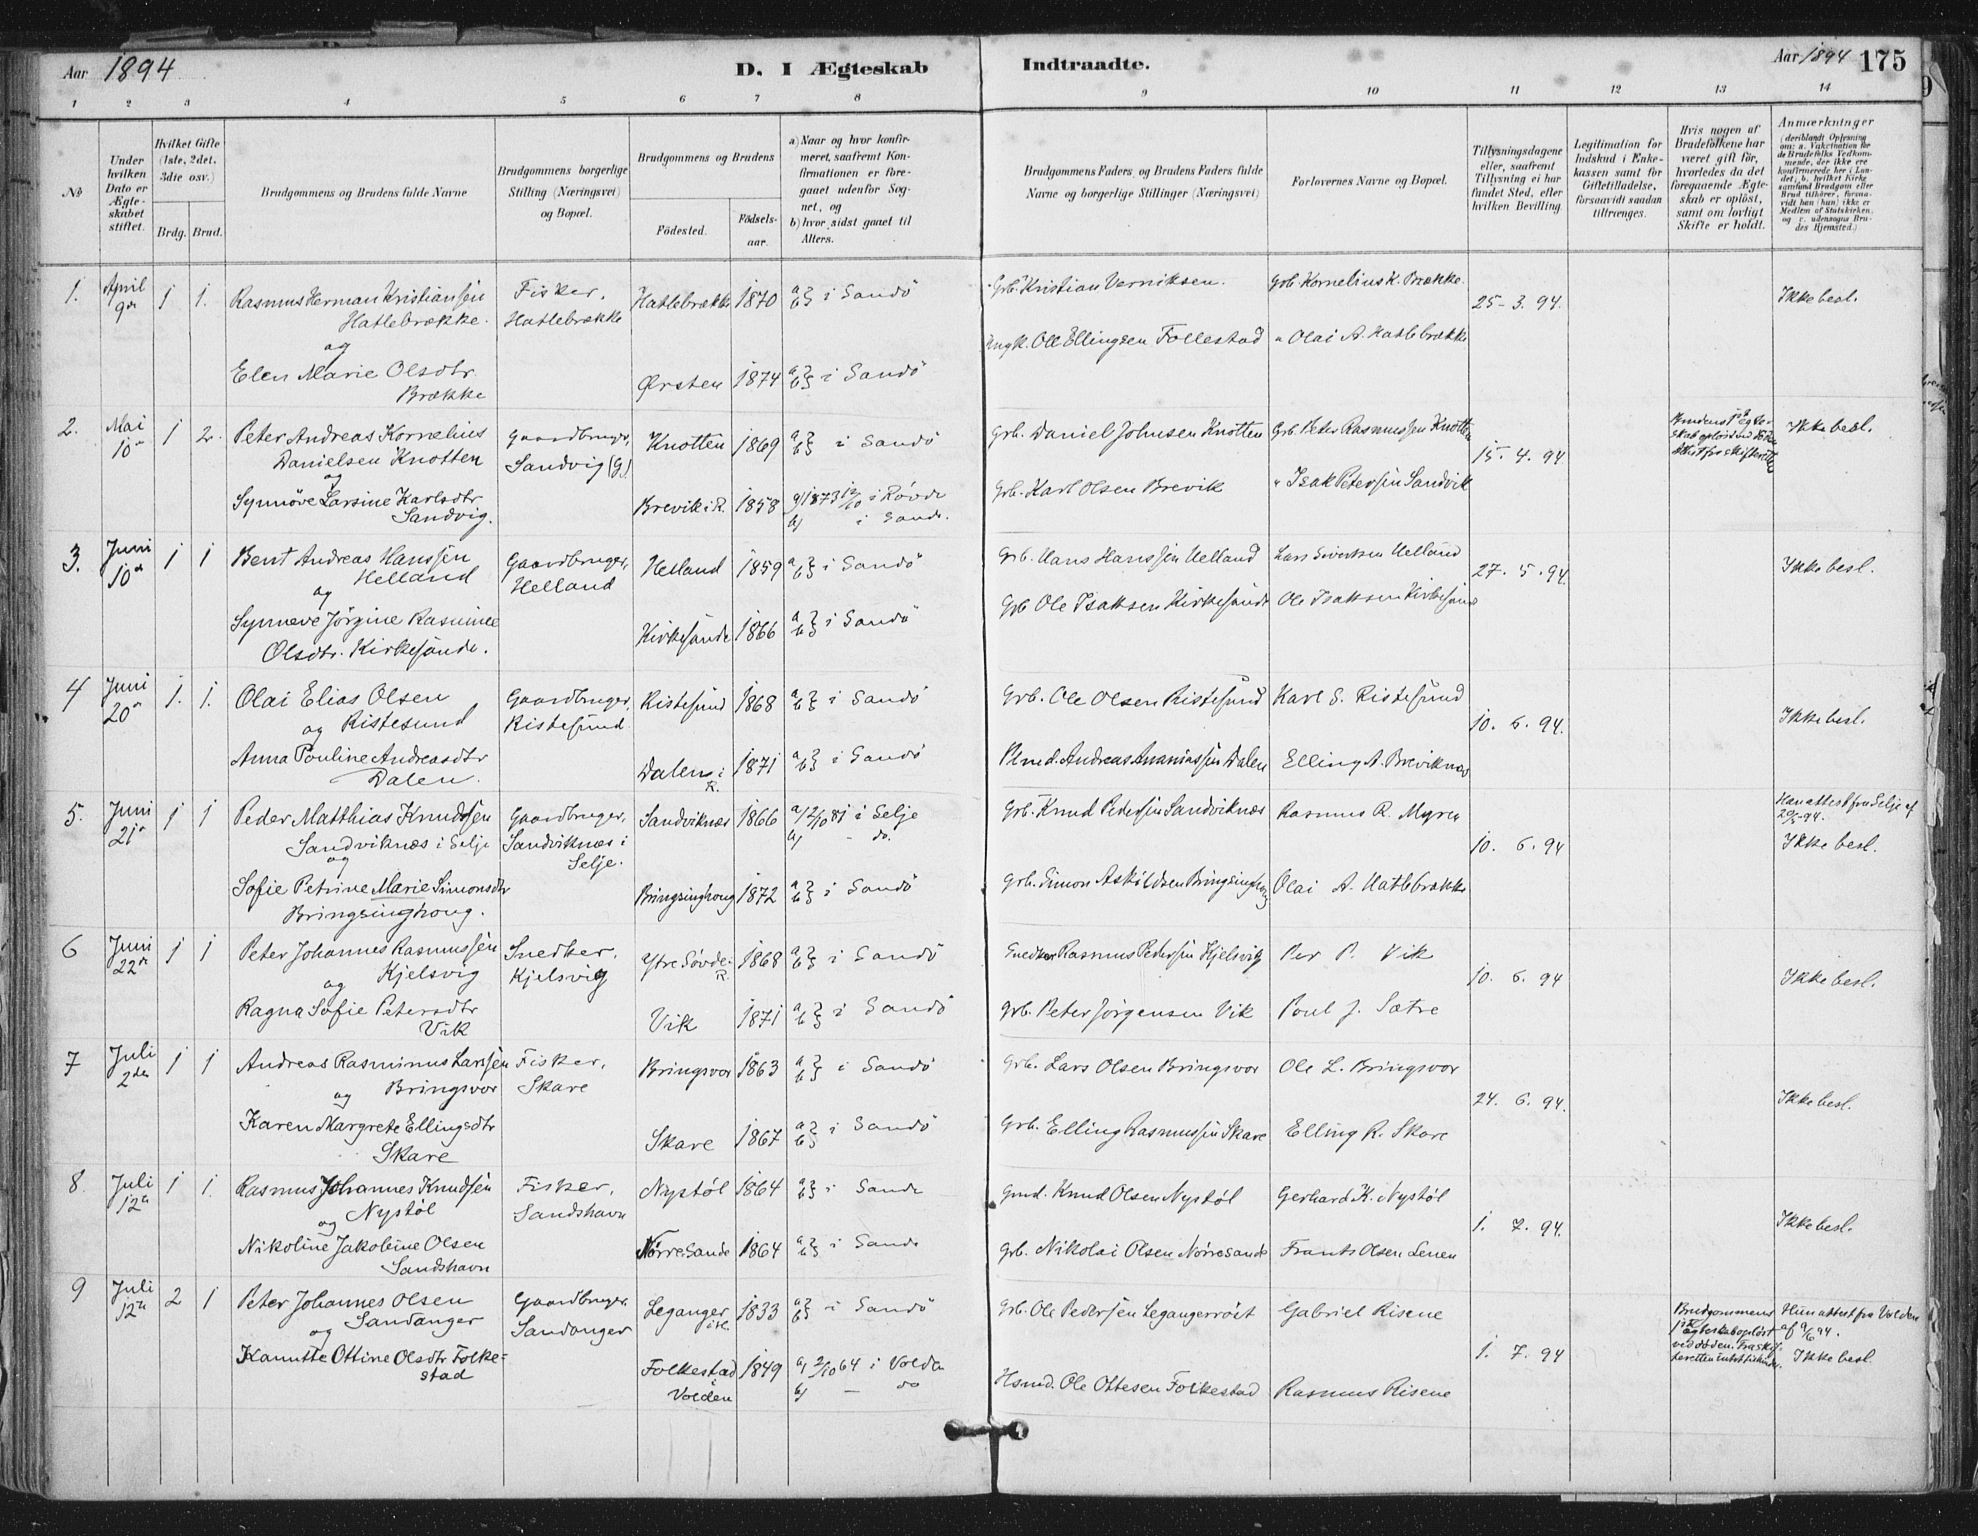 Aar 1894
D. I Ægteskab Indtraadte.
Aar 1894 175
1 2 3 4 5 6 7 8 9 10 11 12 13 14
№
Under hvilken Dato er Ægteskabet stiftet.
Hvilket Gifte (1ste, 2det, 3die osv.)
Brdg. Brud.
Brudgommens og Brudens fulde Navne
Brudgommens borgerlige Stilling (Næringsvei) og Bopæl.
Brudgommens og Brudens
Födested.
Födselsaar.
a) Naar og hvor konfirmeret, saafremt Konfirmationen er foregaaet udenfor Sognet, og
b) hvor sidst gaaet til Alters.
Brudgommens Faders og Brudens Faders fulde Navne og borgerlige Stillinger (Næringsvei)
Forlovernes Navne og Bopæl.
Tillysningsdagene eller, saafremt Tillysning ei har fundet Sted, efter hvilken Bevilling.
Legitimation for Indskud i Enkekassen samt for Giftetilladelse, forsaavidt saadan tiltrænges.
Hvis nogen af Brudefolkene har været gift för, hvorledes da det foregaaende Ægteskab er oplöst, samt om lovligt Skifte er holdt.
Anmærkninger (deriblandt Oplysning om: a. Vakcination for de Brudefolks Vedkommende, der ikke ere konfirmerede her i Landet; b. hvilket Kirkesamfund Brudgom eller Brud tilhörer, forsaavidt han (hun) ikke er Medlem af Statskirken, og c. udensogns Brudes Hjemsted.)
1. April 9de 1 1. Rasmus Herman Kristianssen Hatlebrække. Fisker, Hatlebrække Hatlebrække 1870 a/b} i Sandö Grb. Kristian Verniksen. Grb. Kornelius K. Brække 25-3. 94. Ikke besl.
og
Elen Marie Olsdtr Brække Ørsten 1874 a/b} i Sandö Ungk. Ole Ellingsen Follestad " Olai A. Hatlebrække
2. Mai 10de 1 2. Peter Andreas Kornelius Danielsen Knotten Gaardbruger, Sandvig (G.) Knotten 1869 a/b} i Sandö Grb. Daniel Johnsen Knotten Grb. Peter Rasmussen Knotten 15. 4. 94 Ikke besl.
og
Synnöve Larsine Karlsdtr Sandvig. Brevik i R. 1858 a) 1873 12/10 i Rövde b) i Sande. Grb. Karl Olsen Brevik " Isak Peterssen Sandvik
3. Juni 10de 1 1 Bent Andreas Hanssen Helland Gaardbruger, Helland Helland 1859 a/b} i Sandö Grb. Hans Hanssen Helland Lars Sivertsen Helland 27. 5. 94. Ikke besl.
og
Synneve Jörgine Rasmine Olsdtr. Kirkesunde. Kirkesunde 1866 a/b} i Sandö Grb Ole Isaksen Kirkesunde Ole Isaksen Kirkesund
4 Juni 20de 1. 1. Olai Elias Olsen Ristesund Gaardbruger, Ristesund Ristesund 1868 a/b} i Sandö Grb. Ole Olsen Ristesund Karl S. Ristesund 10. 6. 94. Ikke besl.
og
Anna Pouline Andreasdtr Dalen. Dalen i R. 1871 a/b} i Sandö Plmd. Andreas Ananiassen Dalen Elling A. Breviknæs
5. Juni 21de 1 1 Peder Matthias Knudssen Sandviknæs i Selje Gaardbruger, Sandviknæs i Selje. Sandviknæs 1866 a/ 2/10 81 i Selje b/ – do. Grb. Knud Pederssen Sandviknæs Rasmus R. Myren 10. 6. 94 Han attest fra Selje af 20/5-94. Ikke besl.
og
Sofie Petrine Marie Simonsdtr Bringsinghoug. Bringsinghoug 1872 a/b} i Sandö Grb. Simon Askildsen Bringsinghoug Olai A. Hatlebrække
6 Juni 22de 1 1 Peter Johannes Rasmussen Kjelsvig Snedker, Kjelsvig Ytre Søvde i R. 1868 a/b} i Sandö Snedker Rasmus Pederssen Kjelsvig Per P. Vik 10. 6. 94 Ikke besl.
og
Ragna Sofie Petersdtr Vik Vik 1871 a/b} i Sandö Grb. Peter Jörgensen Vik Poul J. Sætre
7 Juli 2den 1 1 Andreas Rasminus Larssen Bringsvor Fisker, Skare Bringsvor 1863 a/b} i Sandö Grb. Lars Olsen Bringsvor Ole L. Bringsvor 24. 6. 94. Ikke besl.
og
Karen Margrete Ellingsdtr Skare Skare 1867 a/b} i Sandö Grb. Elling Rasmussen Skare Elling R. Skare
8 Juli 12te 1 1. Rasmus Johannes Knudssen Nystöl Fisker, Sandshavn Nystöl 1864 a/b} i Sande Gmd. Knud Olsen Nystöl Gerhard K. Nystöl 1. 7. 94. Ikke besl.
og
Nikoline Jakobine Olsen Sandshavn Nörre Sande 1864 a/b} i Sande Grb. Nikolai Olsen Nörresande Frants Olsen Lenen
9 Juli 12te 2 1 Peter Johannes Olsen Sandanger Gaardbruger, Sandanger Leganger 1833 a/b} i Sandö Grb. Ole Pederssen Legangerröst Gabriel Risene 1. 7. 94 Brudgommens 1ste Ægteskab oplöst ved döden. Hun attest fra Volden af 9/6 94. Ikke besl.
og
Kanutte Ottine Olsdtr Folkestad Folkestad i Volden 1849 a/ 2/10 64 i Volden b/ – do Hsmd. Ole Ottesen Folkestad Rasmus Risene